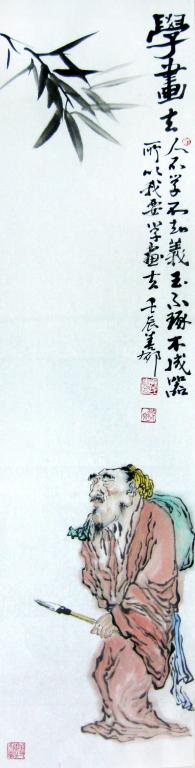 學畫去
人不学不知義玉不琢不成器
所以我要学畫去壬辰善都